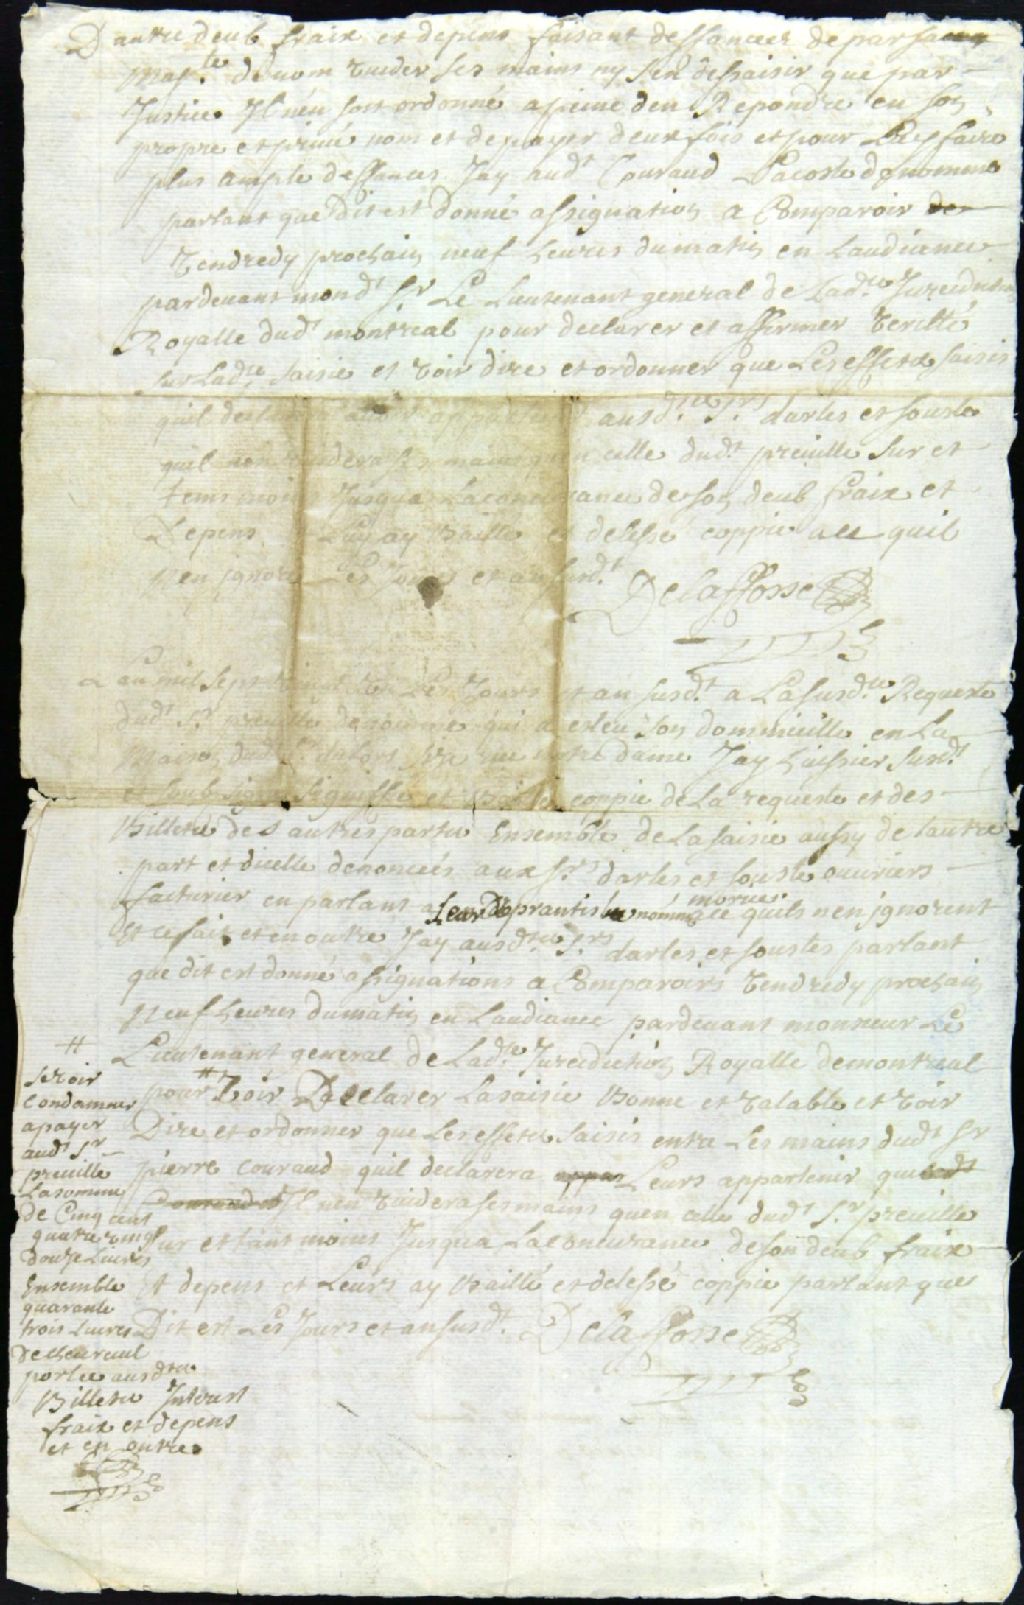 D autre deub fraix et depens faisant deffances de par sa
Majté de non vuider ses mains ny s'en dessaisir que par
Justice Il n'en soit ordonné a peine d'en Repondre en son
propre et privé nom et de payer deux fois et pour luy faire
plus ample deffances Jay audt Couraud Lacoste denommé
parlant que dit est donné assignation a Comparoir
Vendredy prochain neuf heures du matin en Laudiance
pardevant mondt Sr Le Lieutenant general de Ladte Jurisdiction
Royalle dudt montreal pour declarer et affirmer verité
sur Ladte saisie et voir dire et ordonner que Les effets saisis
quil declarera ausdts Srs darles et souste
quil non vuidera ses mains qu'en celle dudt preville sur et
tems moins Jusqua Laconcurance de son deub fraix et
Depens Luy ay Baillé et delessé coppie a ce quil
n'en ignore Les Jours et an susdt Delafosse

Lan mil sept Les Jours et an susdt a Lasusdte Requeste
dudt Sr preville denommé qui a esleu son dommicille en La
Maison dudt rue notre dame Jay huissier susdt
et soubsigné signiffié et coppie de La requeste et des
Billets des autres partis Ensemble de La saisie aussy de lautre
part et dicelle denoncés aux Srs darles et souste ouvriers
facturier en parlant a Leur aprantis nommé morice a ce quils n'en ignorent
Et ce fait et en outre Jay ausdts Srs darles et soustes parlant
que dit est donné assignations a Comparoirs vendredy prochain
Neuf heures du matin en Laudiance pardevant monsieur Le
Lieutenant general de Ladte Jurisdiction Royalle de montreal
pour # Voir Declarer La saisie Bonne et valable et voir
Dire et ordonner que Les effets saisis entre Les mains dudt Sr
pierre Couraud quil declarera Leurs appartenir
Il n'en vuidera ses mains qu'en celle dudt Sr preville
sur et tant moins Jusqua Laconcurance de son deub fraix
Et depens et Leurs ay Baillé et delessé coppie parlant que
Dit est Les Jours et an susdt Delafosse

#
se voir
Condamner
a payer
audt Sr
preville
La somme
de Cinq cent
quatre vingt
douze Livres
Ensemble
quarante
trois Livres
De chevreuil
portée ausdts
Billets Interest
fraix et depens
et en outre